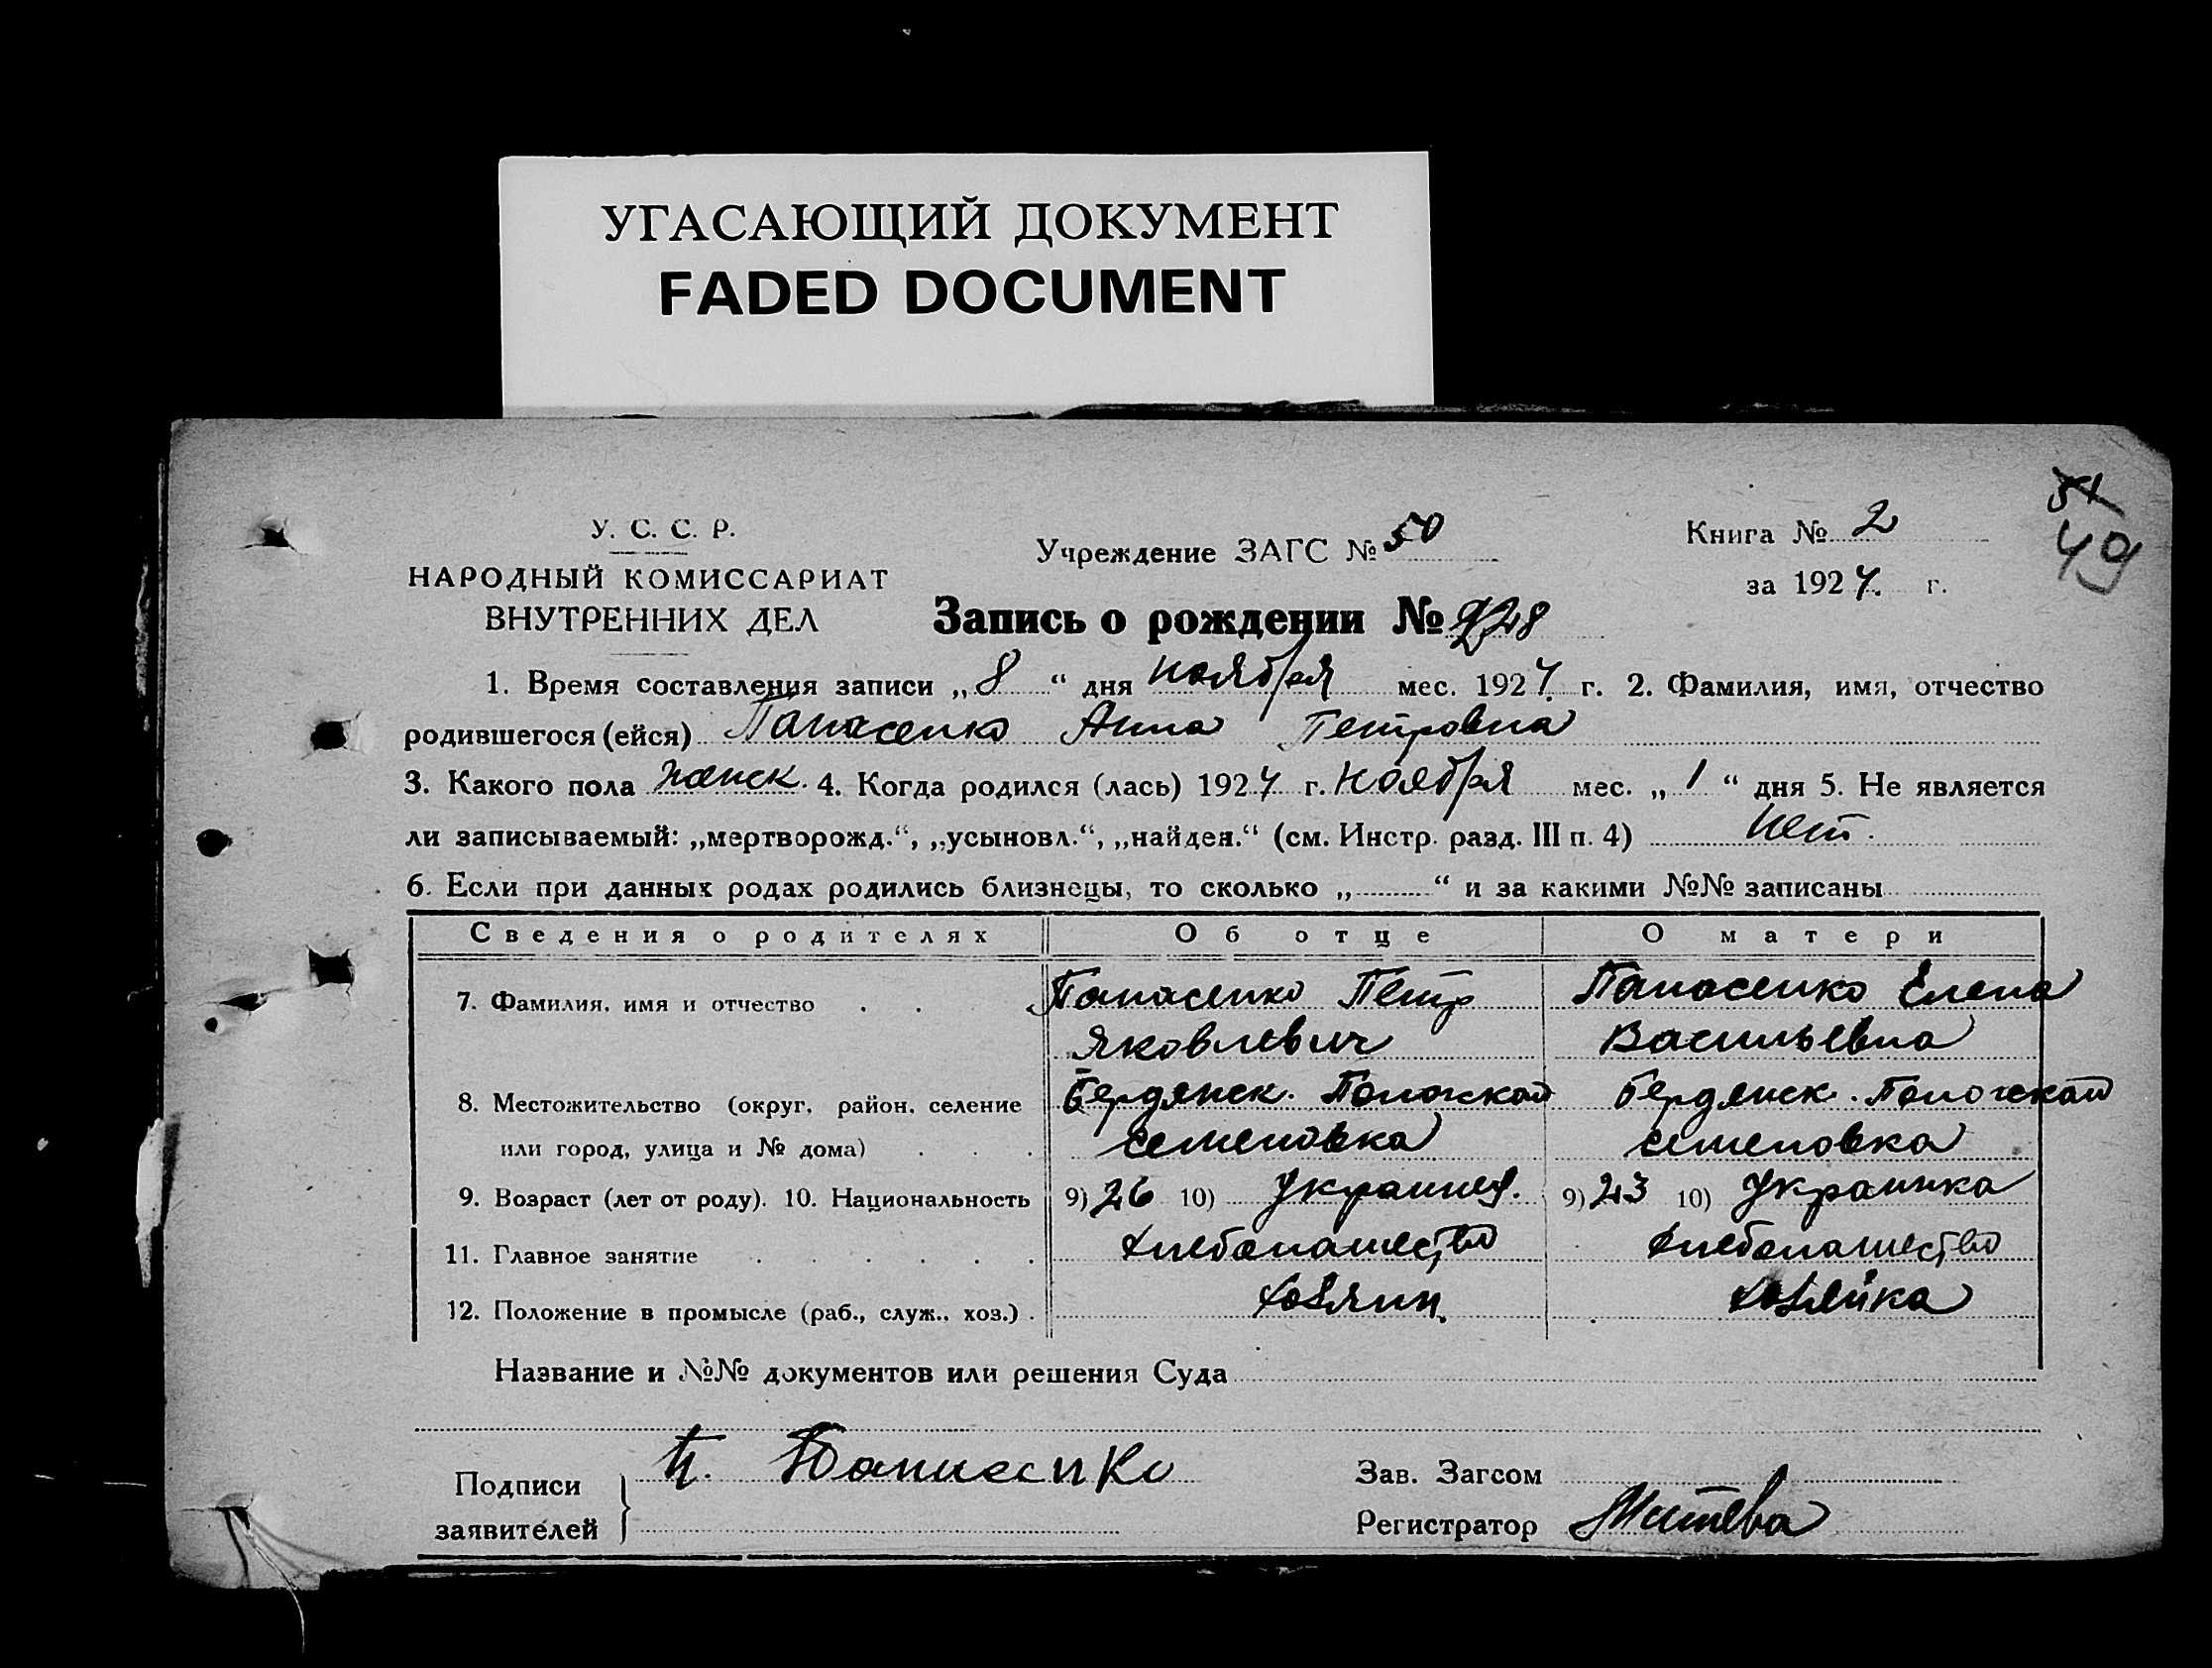 УГАСАЮЩИЙ ДОКУМЕНТ
FADED DOCUMENT
51
49
У. С. С. Р.
НАРОДНЫЙ КОМИССАРИАТ
ВНУТРЕННИХ ДЕЛ
Учреждение ЗАГС № 50
Книга № 2
за 1927. г.
Запись о рождении №
1. Время составления записи „ 8 “ дня ноября мес. 1927. г. 2. Фамилия, имя, отчество
родившегося (ейся) Панасенко Анна Петровна
3. Какого пола женск. 4. Когда родился (лась) 1927 г. Ноября мес. „ 1 “ дня 5. Не является
ли записываемый: „мертворожд.“, „усыновл.“, „найден.“ (см. Инстр. разд. III п. 4) Нет.
6. Если при данных родах родились близнецы, то сколько „ “ и за какими №№ записаны
Сведения о родителях Об отце О матери
7. Фамилия, имя и отчество Панасенко Петр Панасенко Елена
Яковлевич Васильевна
8. Местожительство (округ, район, селение Бердянск. Пологской Бердянск. Пологской
или город, улица и № дома) Семеновка Семеновка
9. Возраст (лет от роду). 10. Национальность 9) 26 10) Украинец. 9) 23 10) Украинка
11. Главное занятие Хлебопашество Хлебопашество
12. Положение в промысле (раб., служ., хоз.) Хозяин Хозяйка
Название и №№ документов или решения Суда
Подписи П. Панасенко Зав. Загсом
заявителей Регистратор